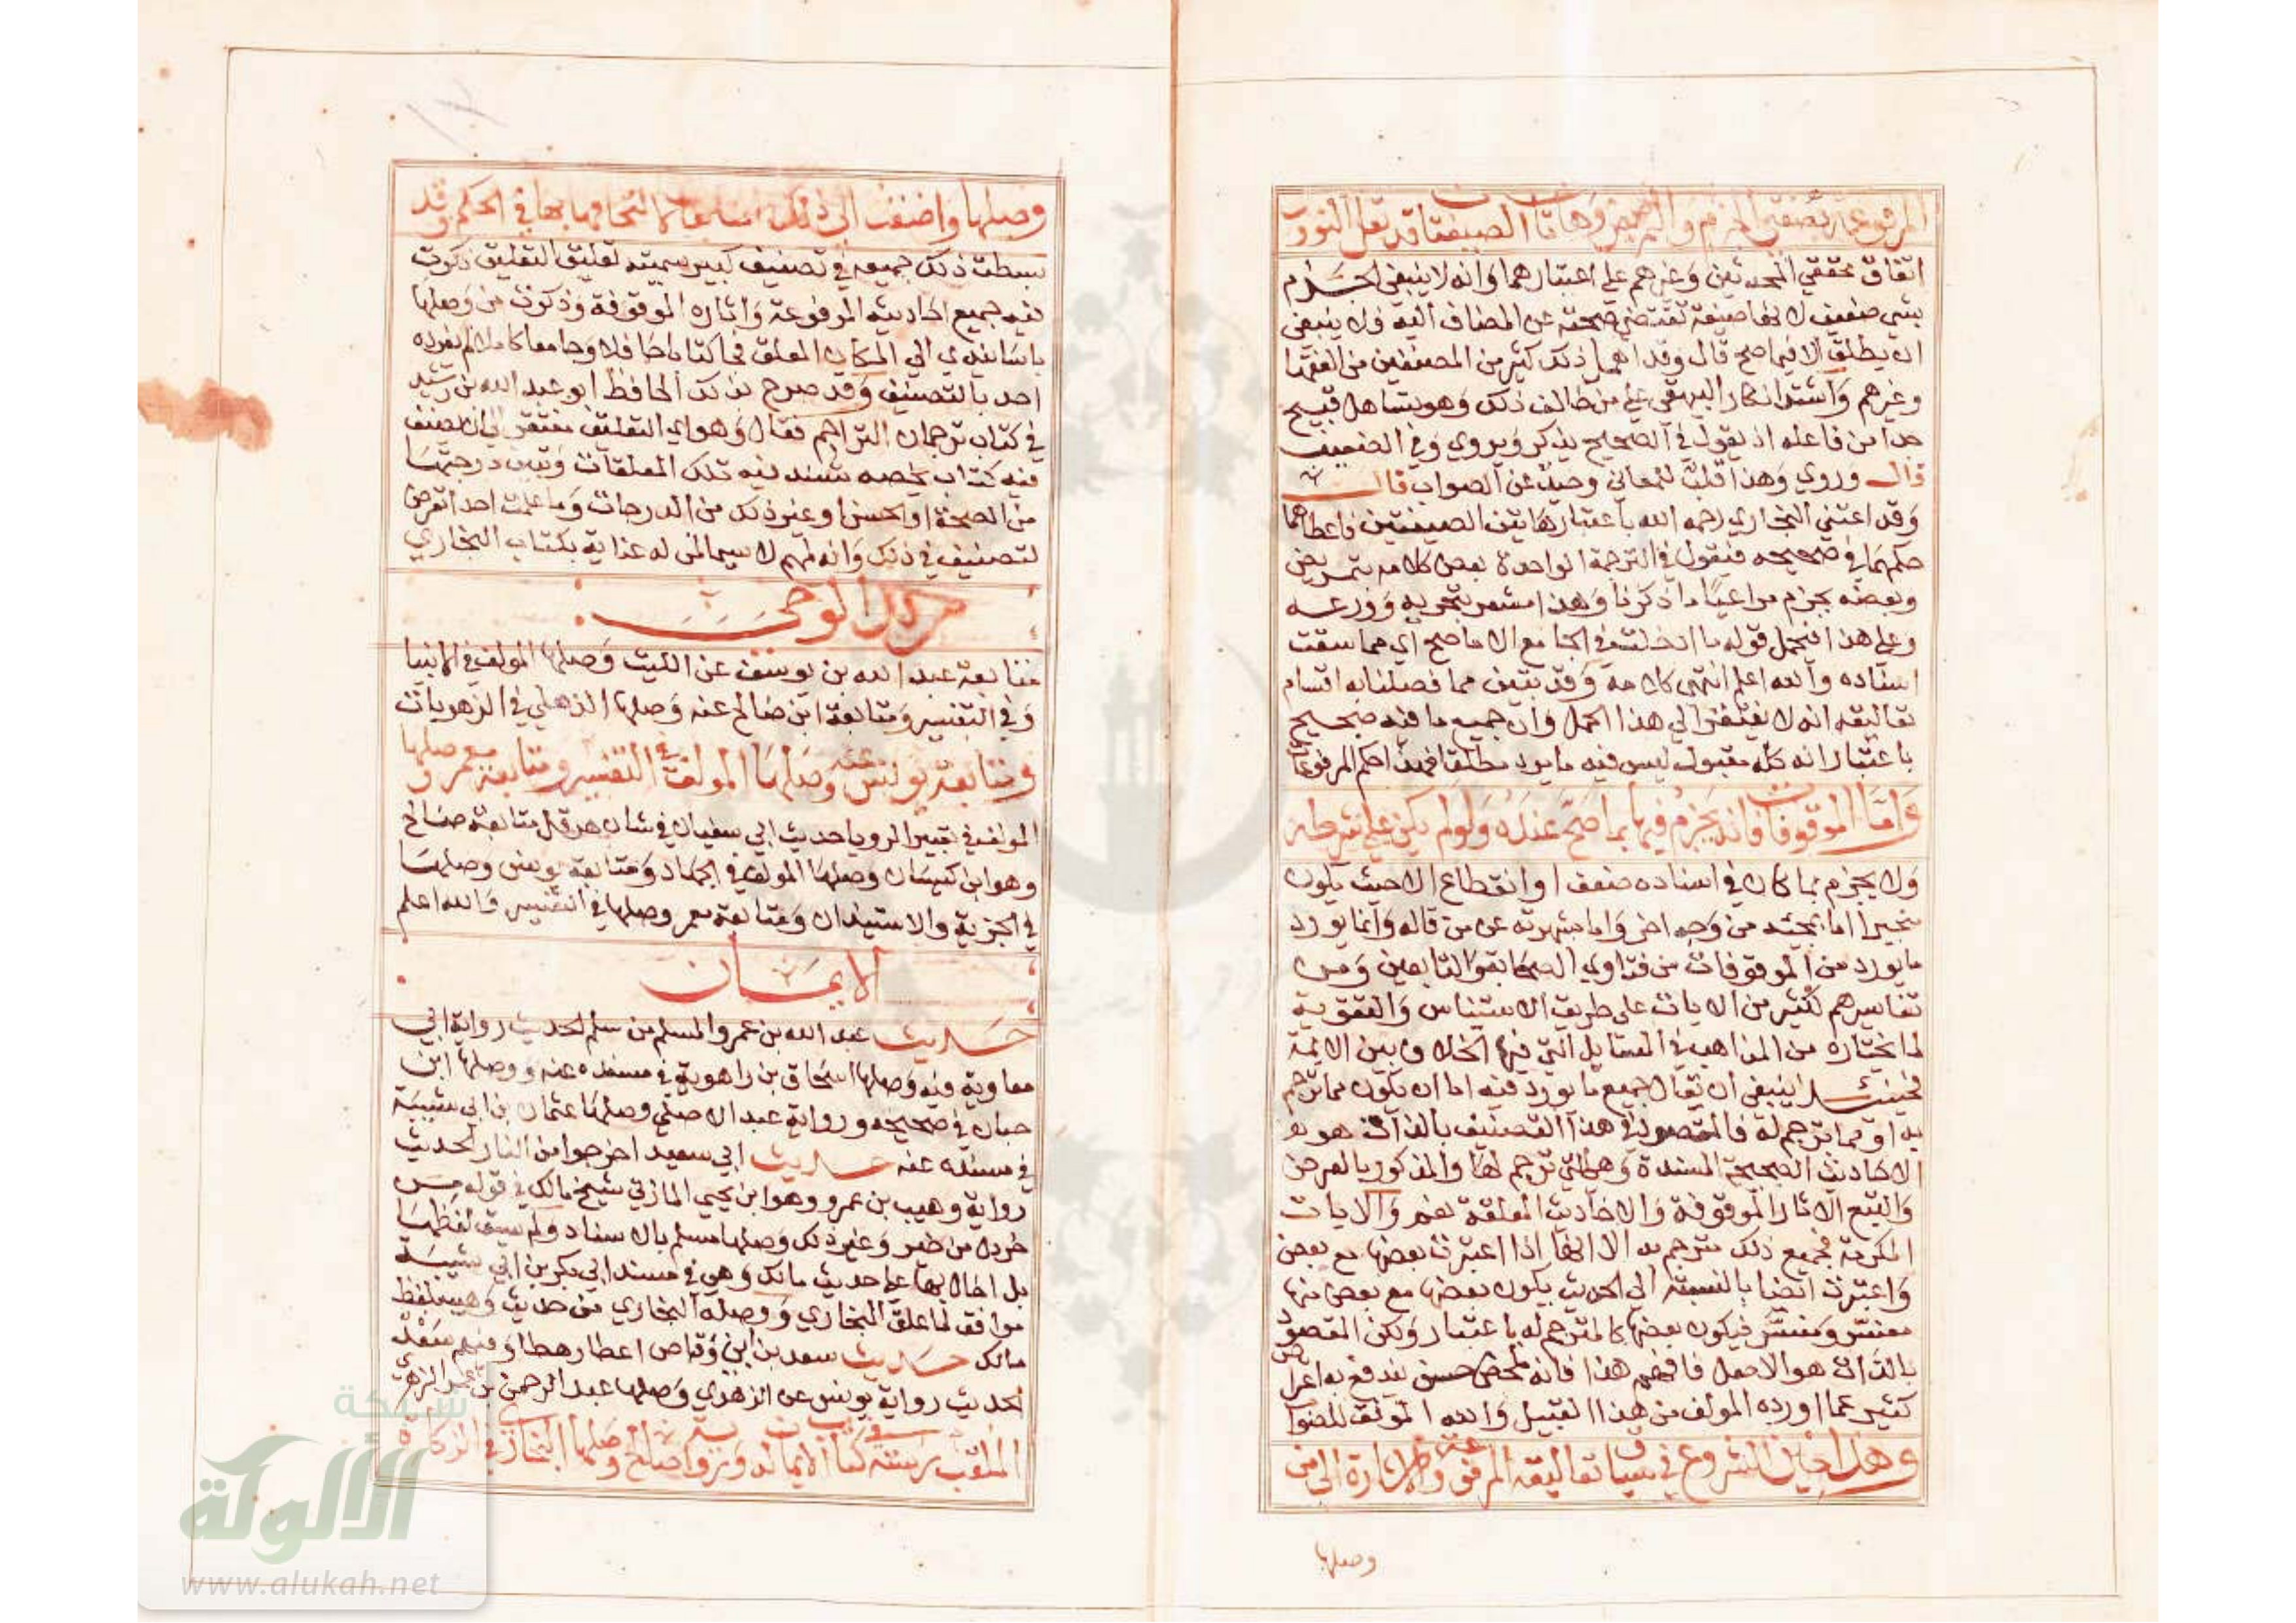 المرفوعة بصيغتي الجزم والتمريض وهاتان الصيغتان قد نقل النووي
اتفاق محققي المحدثين وغيرهم على اعتبارهما وانه لا ينبغي الجزم
بشي ضعيف لانها صيغة تقتضي صحته عن المضاف اليه ولا ينبغي
ان يطلق الا فيما صح قال وقد اهمل ذلك كثير من المصنفين من الفقها
وغيرهم واشتد انكار البيهقي على من خالف ذلك وهو تساهل قبيح
جدا من فاعله اذ يقول في الصحيح يذكر ويروي وفي الضعيف
قال وروي وهذا قلب للمعاني وحيد عن الصواب قال
وقد اعتني البخاري رحمه الله باعتبار هاتين الصيغتين فاعطاهما
حكمهما في صحيحه فيقول في الترجمة الواحدة بعض كلامه بتمريض
وبعضه بجزم مراعيا ما ذكرنا وهذا مشعر بتحريه وورعه
وعلى هذا فيحمل قوله ما ادخلت في الجامع الا ما صح اي مما سقت
اسناده والله اعلم انتهى كلامه وقد تبين مما فصلنا به اقسام
تعاليقه انه لا يفتقر الي هذا الحمل وان جميع ما فيه صحيح
باعتبار انه كله مقبول ليس فيه ما يرد مطلقا فهذا حكم المرفوعات
واما الموقوفات فانه يجزم فيها بما صح عنده ولو لم يكن على شرطه
ولا يجزم بما كان في اسناده ضعف او انقطاع الا حيث يكون
منجبرا اما بمجيئه من وجه اخر واما بشهرته عن من قاله وانما يورد
ما يورد من الموقوفات من فتاوي الصحابة والتابعين ومن
تفاسيرهم لكثير من الايات على طريق الاستيناس والتقوية
لما يختاره من المذاهب في المسايل التي فيها الخلاف بين الايمة
فحينئذ ينبغي ان يقال جميع ما يورد فيه اما ان يكون مما ترجم
به او مما ترجم له فالمقصود في هذا التصنيف بالذات هو
الاحاديث الصحيحة المسندة وهي التي ترجم لها والمذكور بالعرض
والتبع الاثار الموقوفة والاحاديث المعلقة نعم والايات
المكرمة فجميع ذلك مترجم به الا انها اذا اعتبرت بعضها مع بعض
واعتبرت ايضا بالنسبة الي الحديث يكون بعضها مع بعض منها
مفسر ومفسر فيكون بعضها كالمترجم له باعتبار ولكن المقصود
بالذات هو الاصل فافهم هذا فانه مخلص حسن يندفع به اعتراض
كثير عما اورده المولف من هذا القبيل والله الموفق للصواب
وهذا حين الشروع في سياق تعاليقه المرفوعة والاشارة الى من
وصلها
وصلها واضفت الى ذلك المتابعات لالتحاقها بها في الحكم وقد
بسطت ذلك جميعه في تصنيف كبير سميته تعليق التعليق ذكرت
فيه جميع احاديثه المرفوعة واثاره الموقوفة وذكرت من وصلها
باسانيدي الي المكان المعلق فجا كتابا حافلا وجامعا كاملا لم يفرده
احد بالتصنيف وقد صرح بذلك الحافظ ابو عبد الله بن رشيد
في كتاب ترجمان التراجم فقال وهو اي التعليق مفتقر الي ان يصنف
فيه كتاب يخصه تسند فيه تلك المعلقات وتبين درجتها
من الصحة او الحسن او غير ذلك من الدرجات وما علمت احدا تعرض
لتصنيف في ذلك وانه لمهم لا سيما لمن له عناية بكتاب البخاري
الوحي
متابعة عبد الله بن يوسف عن الليث وصلها المولف في الانبيا
وفي التفسير ومتابعة ابن صالح عنه وصلها الذهلي في الزهريات
ومتابعة يونس عنه وصلها المولف في التفسير ومتابعة معمر وصلها
المولف في تعبير الرويا حديث ابي سفيان في شان هرقل متابعة صالح
وهو ابن كيسان وصلها المولف في الجهاد ومتابعة يونس وصلها
في الجزية والاستيذان ومتابعة معمر وصلها في التفسير والله اعلم
الايمان
حديث عبد الله بن عمرو المسلم من سلم الحديث رواية ابي
معاوية فيه وصلها اسحاق بن راهوية في مسنده عنه ووصلها ابن
حبان في صحيحه ورواية عبد الاعلى وصلها عثمان بن ابي شيبة
في مسنده عنه حديث ابي سعيد اخرجوا من النار الحديث
رواية وهيب بن عمرو وهو ابن يحيي المازني شيخ مالك في قوله من
خردل من خير وغير ذلك وصلها مسلم بالاسناد ولم يسق لفظها
بل احال بها على حديث مالك وهي في مسند ابي بكر بن ابي شيبة
موافق لما علق البخاري ووصله البخاري من حديث وهيب بلفظ
مالك حديث سعد بن ابي وقاص اعطا رهطا وفيهم سعد
الحديث رواية يونس عن الزهري وصلها عبد الرحمن بن عمر الزهري
الملقب برسته في كتاب الايمان له ورواية صالح وصلها البخاري في الزكاة
شبكة
الألوكة
www.alukah.net